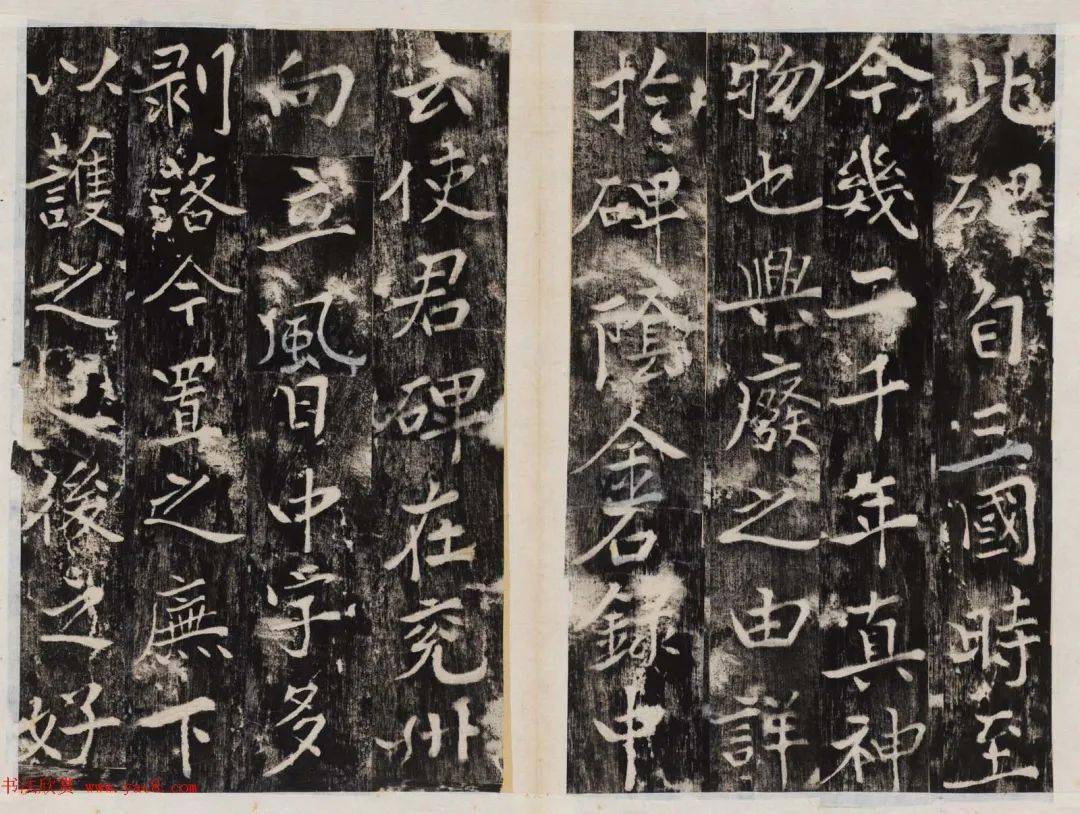 此碑自三國時至
今幾二千年真神
物也興廢之由詳
扵碑隂金石録中
云使君碑在兖州
向立風日中字多
剥落今置之廡下
以護之後之好
书法欣赏 www.yac8.com